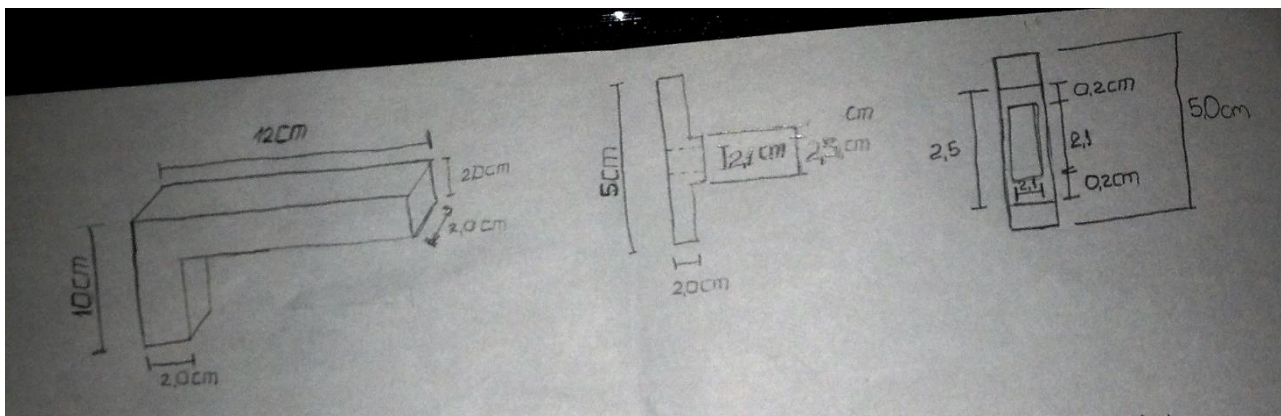 12cm
2.0cm
2,0cm
10cm
2,0cm
5cm
cm
2,1cm
2,5cm
2,0cm
2,5
0,2cm
2,1
2,1
0,2cm
5,0cm